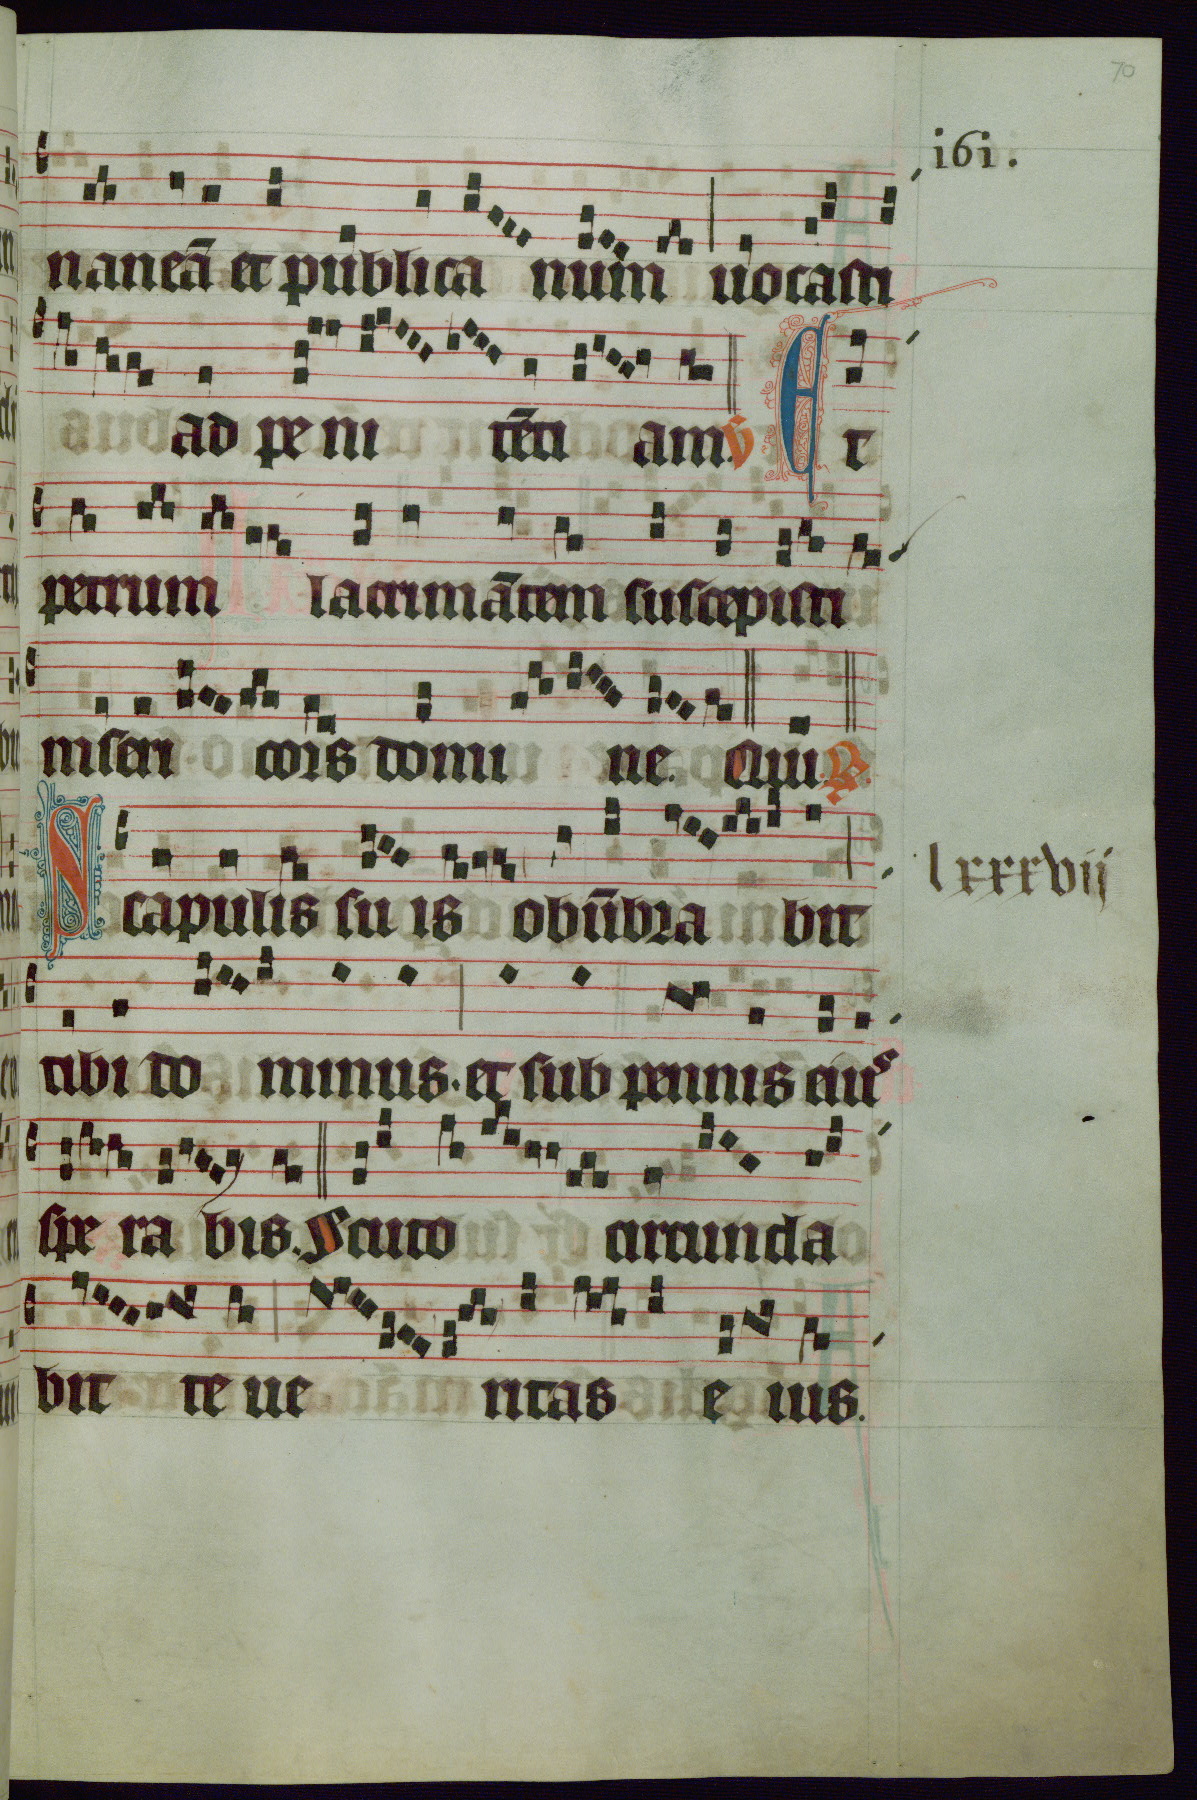 70
i6i.
naneā et publica num uocasti
ad pe ni tēti am. V Et
petrum lacrimātem suscepisti
miseri cors domi ne. Qui. R.
Scapulis su is obūbra bit
lxxxvij
tibi do minus. et sub pennis eius
spe ra bis. Scuto circunda
bit te ue ritas e ius.